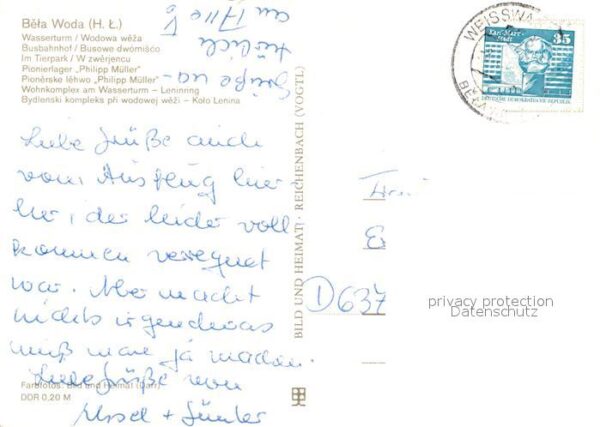 Běła Woda (H. Ł.)
Wasserturm / Wodowa wěža
Busbahnhof / Busowe dwórnišćo
Im Tierpark / W zwěrjencu
Pionierlager „Philipp Müller"
Pioněrske lěhwo „Philipp Müller"
Wohnkomplex am Wasserturm – Leninring
Bydlenski kompleks při wodowej wěži – Koło Lenina
Grüße
an Alle
Liebe Grüße auch
vom Ausflug hier-
her, der leider voll-
kommen verregnet
war. Aber macht
nichts irgendwas
muß man ja machen.
Liebe Grüße von
+ Günter
Farbfotos: Bild und Heimat (Darr)
DDR 0,20 M
BILD UND HEIMAT REICHENBACH (VOGTL)
WEISSWA
BĚŁA W
Karl-Marx-
Stadt
35
DEUTSCHE DEMOKRATISCHE REPUBLIK
D637
privacy protection
Datenschutz